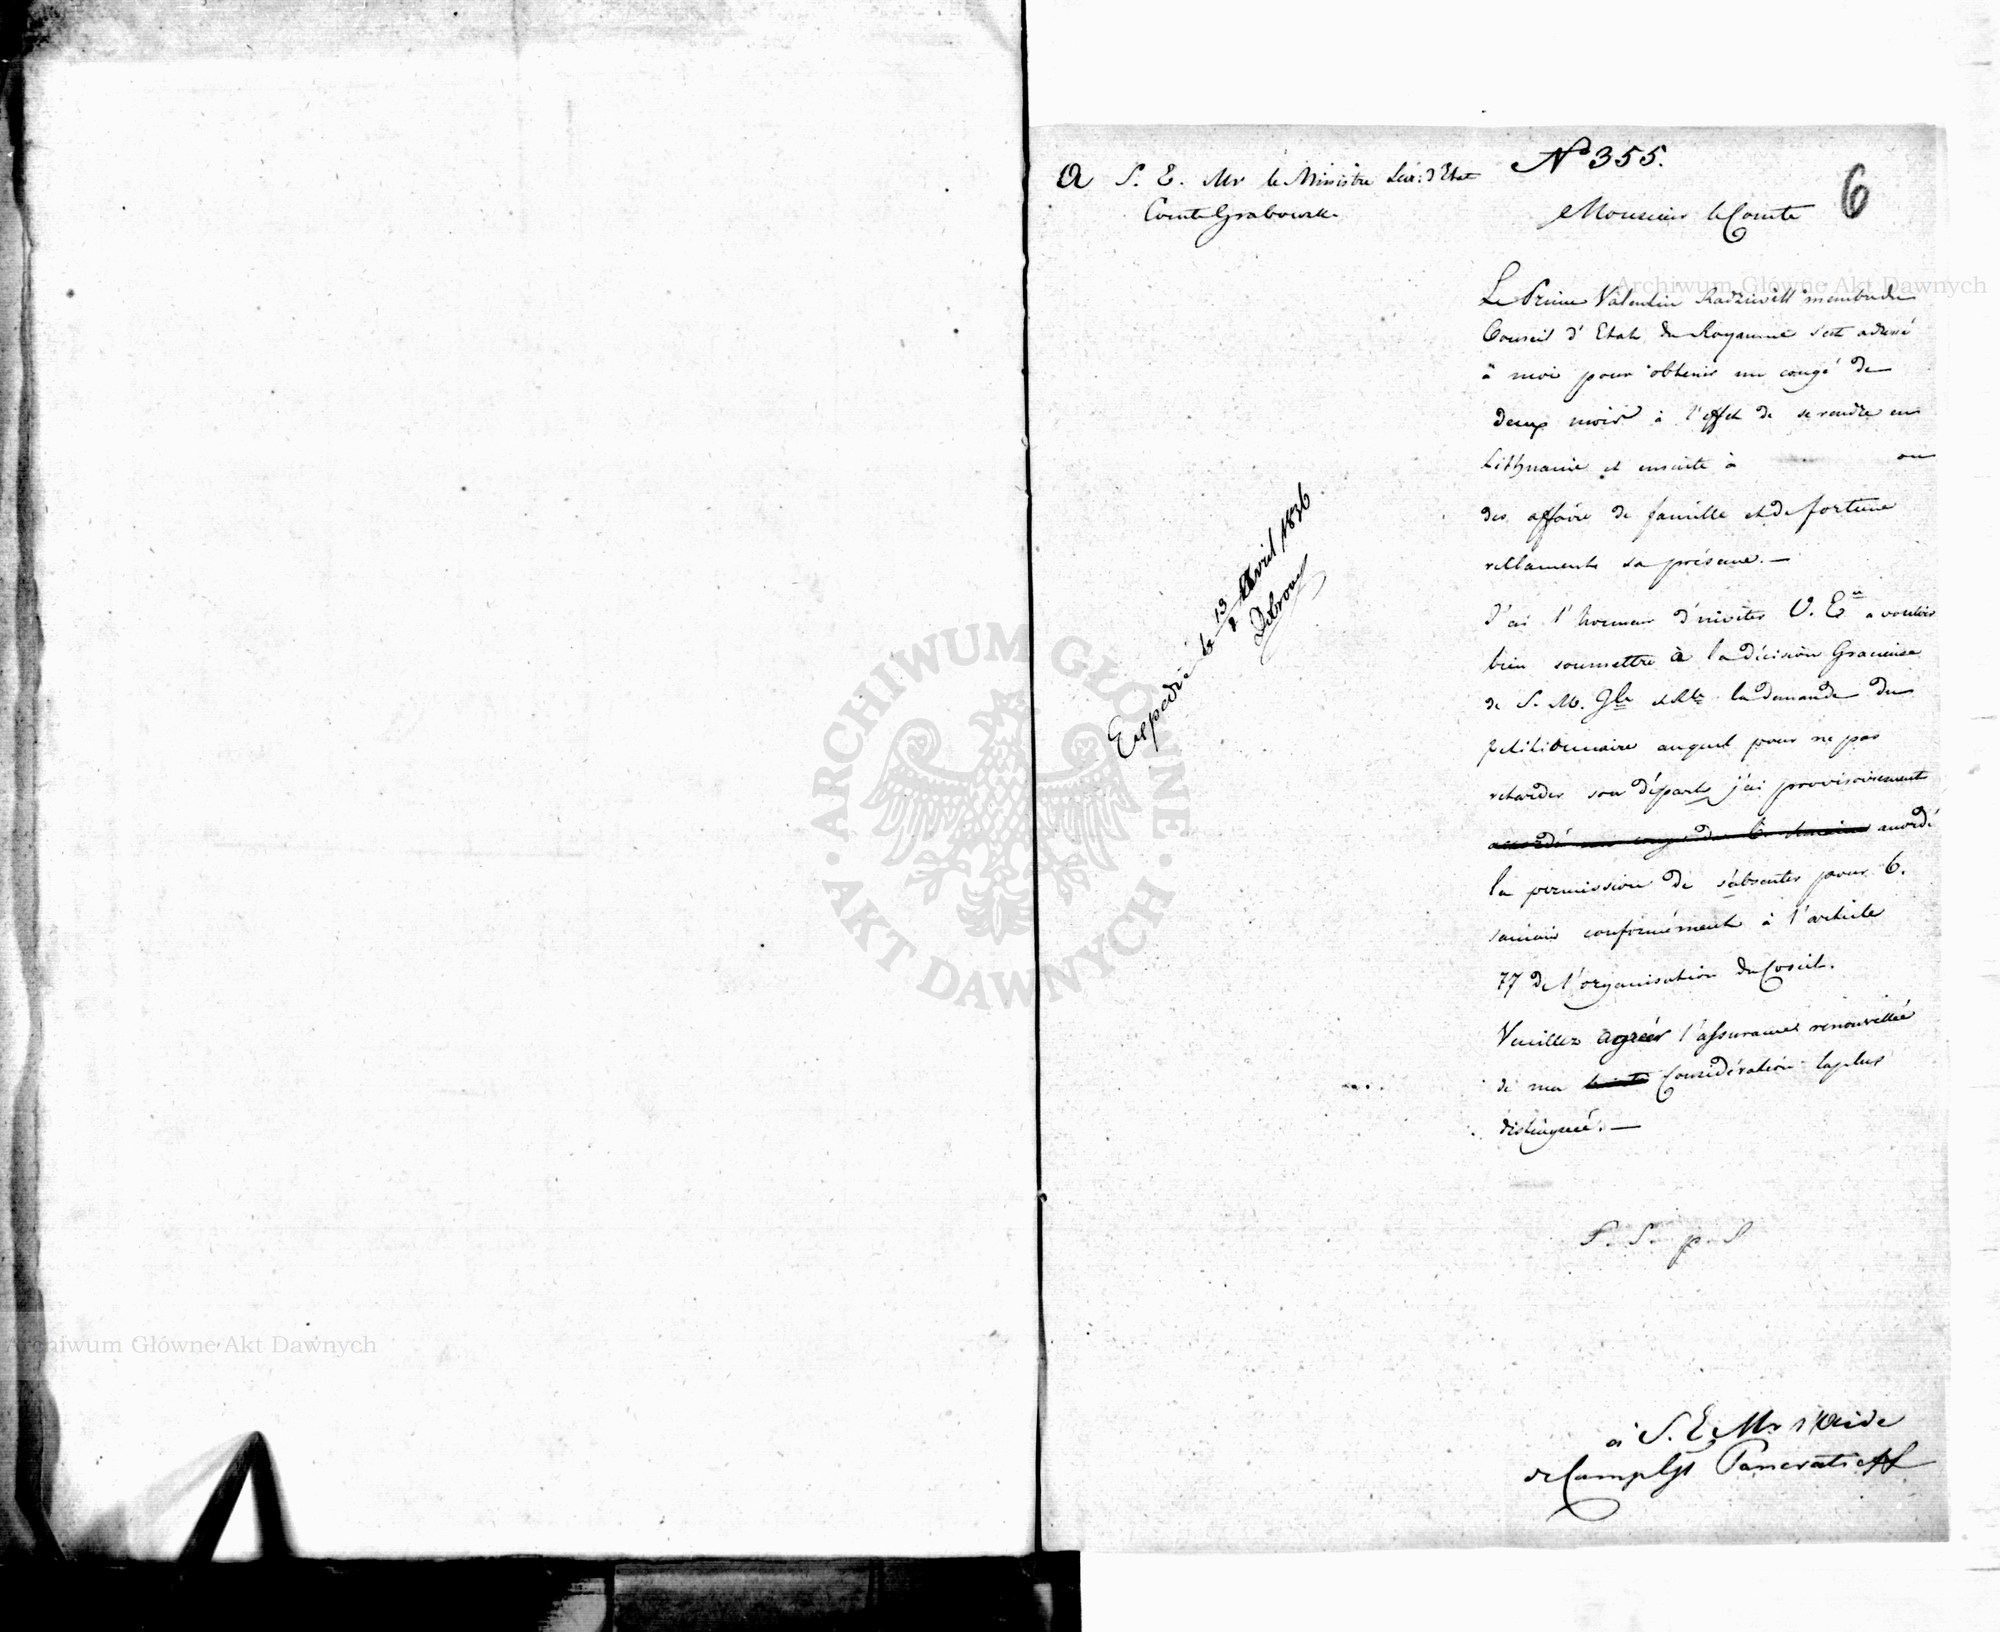 N° 355.
6
A S. E. Mr le Ministre Secr: d'Etat
Comte Grabowski
Monsieur le Comte
Le Prince Valentin Radziwill membre du
Conseil d'Etat du Royaume s'est adressé
à moi pour obtenir un congé de
deux mois à l'effet de se rendre en
Lithuanie et ensuite à ou
des affaire de famille et de fortune
réllament sa présence. —
J'ai l'honneur d'inviter V. E. a vouloir
bien soumettre à la décision Gracieuse
de S. M. Ile et Rle la demande du
petitionnaire auquel pour ne pas
retarder son départ j'ai provisoirement
accordé un congé de 6. semaines accordé
la permission de s'absenter pour 6.
semain conformément à l'article
77 de l'organisation du Coseil.
Veuillez agréer l'assurance renouvellée
de ma haute Considération la plus
distinguée. —
Expedié le 13/1 Avril 1836
P. S. p. S
à S. E. Mr l'Aide
de Camp Gl Pancratieff
Archiwum Główne Akt Dawnych
Archiwum Główne Akt Dawnych
ARCHIWUM GŁÓWNE
AKT DAWNYCH